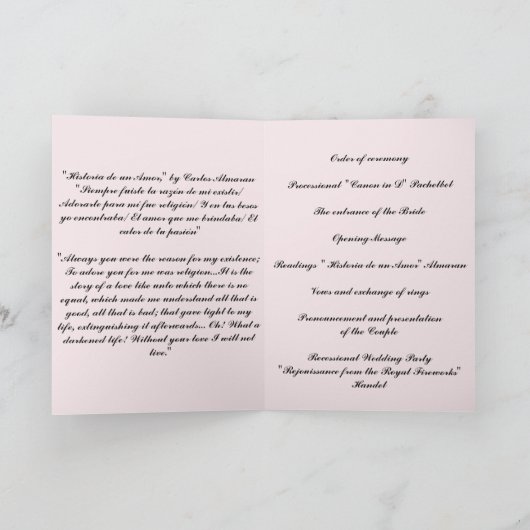 "Historia de un Amor," by Carlos Almaran
"Siempre fuiste la razón de mi existir/
Adorarte para mi fue religión/ Y en tus besos
yo encontraba/ El amor que me brindaba/ El
calor de tu pasión"
"Always you were the reason for my existence;
To adore you for me was religion...It is the
story of a love like unto which there is no
equal, which made me understand all that is
good, all that is bad; that gave light to my
life, extinguishing it afterwards... Oh! What a
darkened life! Without your love I will not
live."
Order of ceremony
Processional "Canon in D" Pachelbel
The entrance of the Bride
Opening Message
Readings " Historia de un Amor" Almaran
Vows and exchange of rings
Pronouncement and presentation
of the Couple
Recessional Wedding Party
"Rejouissance from the Royal Fireworks"
Handel